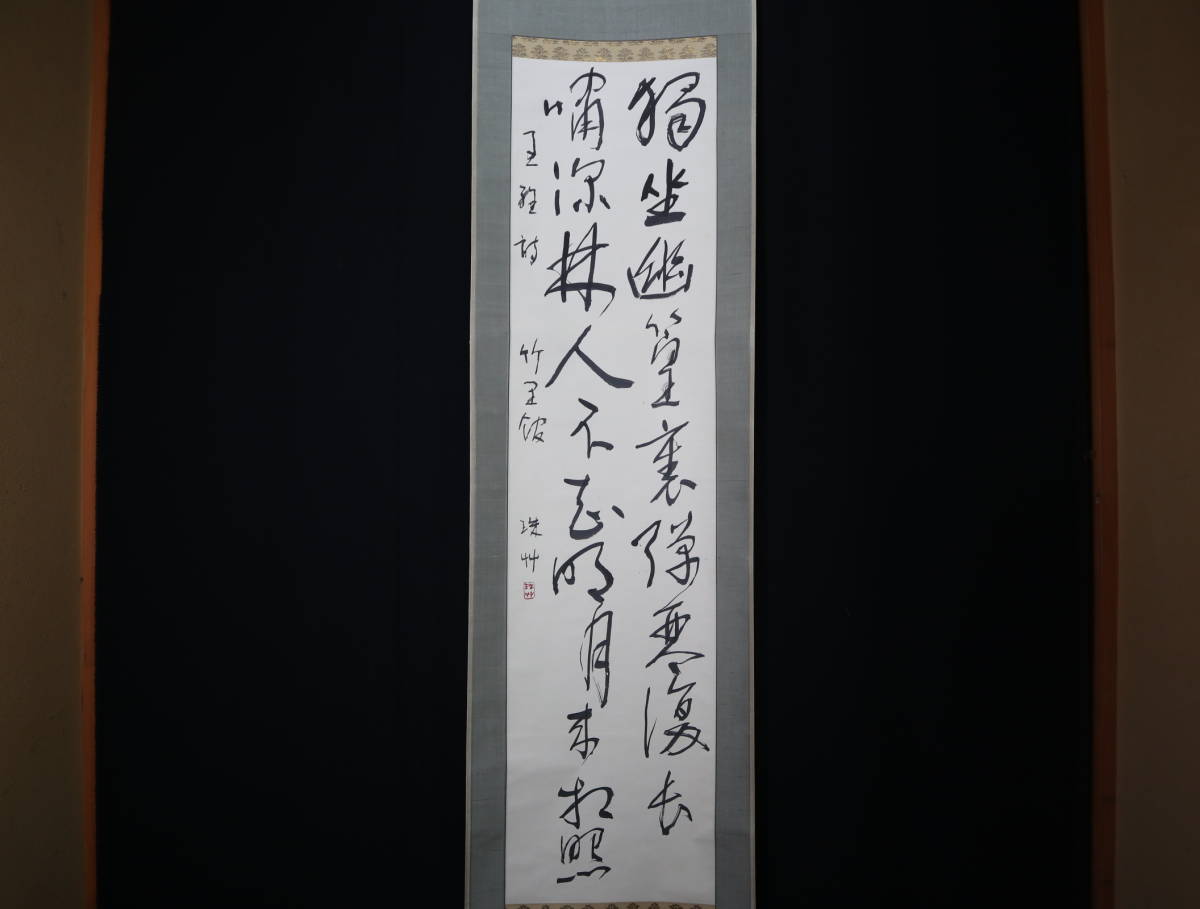 獨坐幽篁裏弾琴復長
嘯深林人不知明月来相照
王維詩 竹里館 珠艸